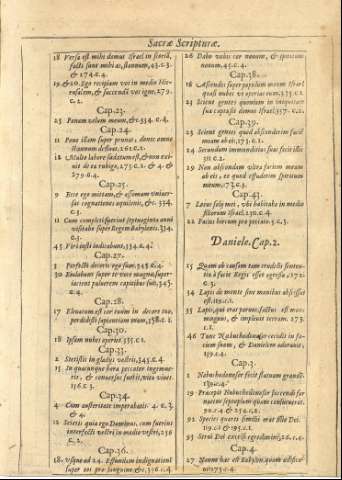 Sacræ Scripturæ.
18 Versa est mihi domus Israel in scoria,
facti sunt mihi æs, stannum, 43.c.3.
& 174.c.4.
19.& 20. Ego recipiam vos in medio Hie-
rusalem, & succendā vos igne, 279.
c.2.
Cap.23.
25 Ponam zelum meum, & c. 334. c.4.
Cap.24.
11 Pone illam super prunas, donec omne
stannum deficiat, 261.c.2.
12 Multo labore sudatum est, & non exi-
uit de ea rubigo, 273.c.1. & 4. &
279.c.2.
Cap.25.
9 Ecce ego mittam, & assumam vniuer-
sas cognationes aquilonis, & c. 334.
c.3.
11 Cum completi fuerint septuaginta anni
visitabo super Regem Babylonis. 334.
c.3.
45 Viri iusti iudicabunt, 334.c.4.
Cap.27.
3 Perfecti decoris ego sum, 345.c.4.
30 Eiulabunt super te voce magna, super-
iacient puluerem capitibus suis, 345.
c.4.
Cap.28.
17 Eleuatum est cor tuum in decore tuo,
perdidisti sapientiam tuam, 358.c.1.
Cap.30.
18 Ipsam nubes operiet, 335.c.1.
Cap.33.
2 Stetistis in gladijs vestris, 345.c.4.
15 In quacunque hora peccator ingemue-
rit, & conuersus fuerit, vita viuet
156.c.3.
Cap.34.
4 Cum austeritate imperabatis. 4. c.3.
& 4.
12 Scietis quia ego Dominus, cum fuerint
interfecti vestri in medio vestri, 236
c.2.
Cap.36.
18 Vsque ad 24. Effundam indignationē
super eos pro sanguine, & c. 336.c.4
26 Dabo vobis cor nouum, & spiritum
nouum, 45.c.4.
Cap.38.
16 Ascendes super populum meum Israel
quasi nubes vt operias terram, 335.c.1.
23 Scient gentes quoniam in iniquitate
sua captasit domus Israel 337.c.1.
Cap.39.
23 Scient gentes quod absconderim faciē
meam ab eis, 173.c.1.
24 Secundum immunditias suas feci illis
351 c.1.
29 Non abscondam vltra faciem meam
ab eis, eo quod effuderim spiritum
meum, 173.c.3.
Cap.43.
7 Locus solij mei, vbi habitabo in medio
filiorum Israel. 230.c.4.
22 hircum pro peccato. 5.c.3.
Daniele. Cap.2.
15 Quam ob causam tam crudelis senten-
tia à facie Regis esset egressa, 172.
c.3.
34 Lapis de monte sine manibus abscissus
est.
35 Lapis, qui erat paruus, factus est mons
magnus, & impleuit terram, 273.
c.1.
46 Tunc Nabuchodonosor cecidit in fa-
ciem suam, & Danielem adorauit,
159.c.4.
Cap.3.
1 Nabuchodonosor fecit statuam grande
19 Præcepit Nabuchodonosor succendi for-
nacem septuplum quam consueuerat.
92.c.4 & 254.c.2.
92 Species quarti similis erat filio Dei.
119.c.1 & 195.c.1.
93 Serui Dei excelsi egredimini, 26.c.4.
Cap.4.
27 Nonne hæc est Babylon, quam ædifica-
ui 173.c.4.